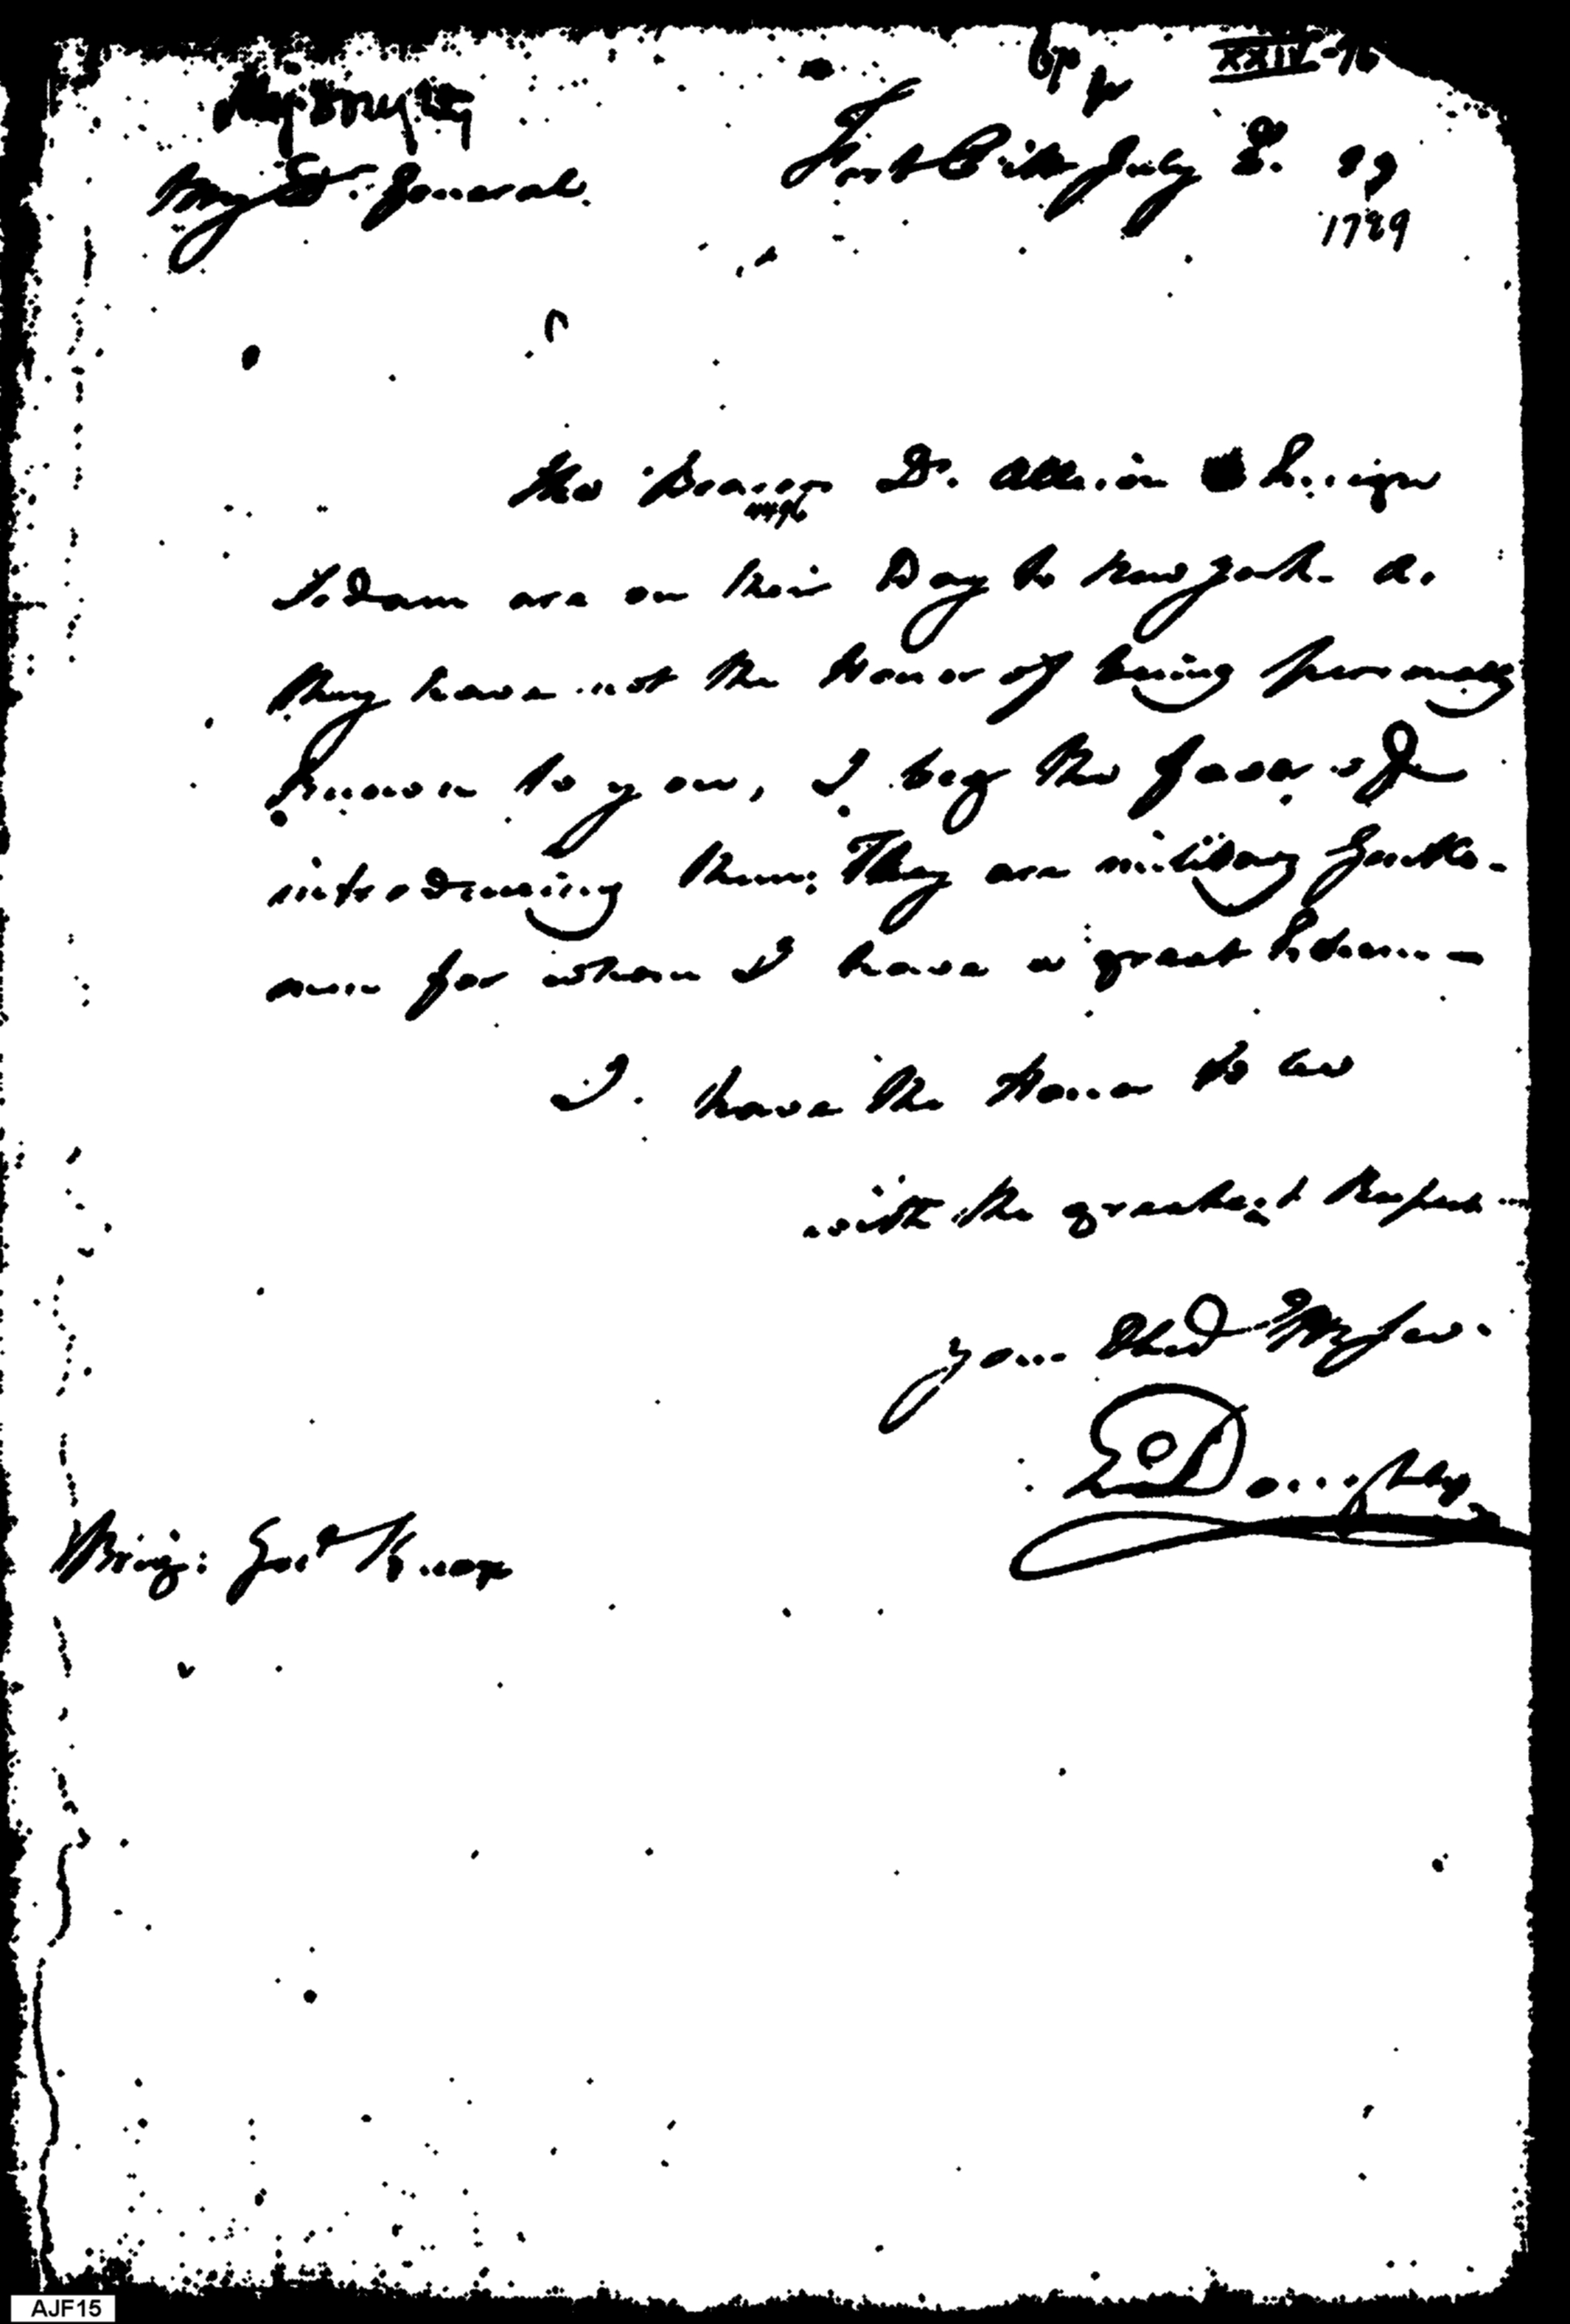 XXIV-76
Maj Doughty
Fort Pitt July 8. 89
1789
My Dr. General.
The Bearer Dr. Allison & Ensign
Sedam are on their Way to New york. As
they have not the Honor of being personally
known to you, I beg the favor of
introducing them: They are military Gentle-
men for whom I have a great Esteem -
I have the Honor to be
with the greatest Respect
your Obed Ser.
Doughty
Brig: Genl Knox
AJF15